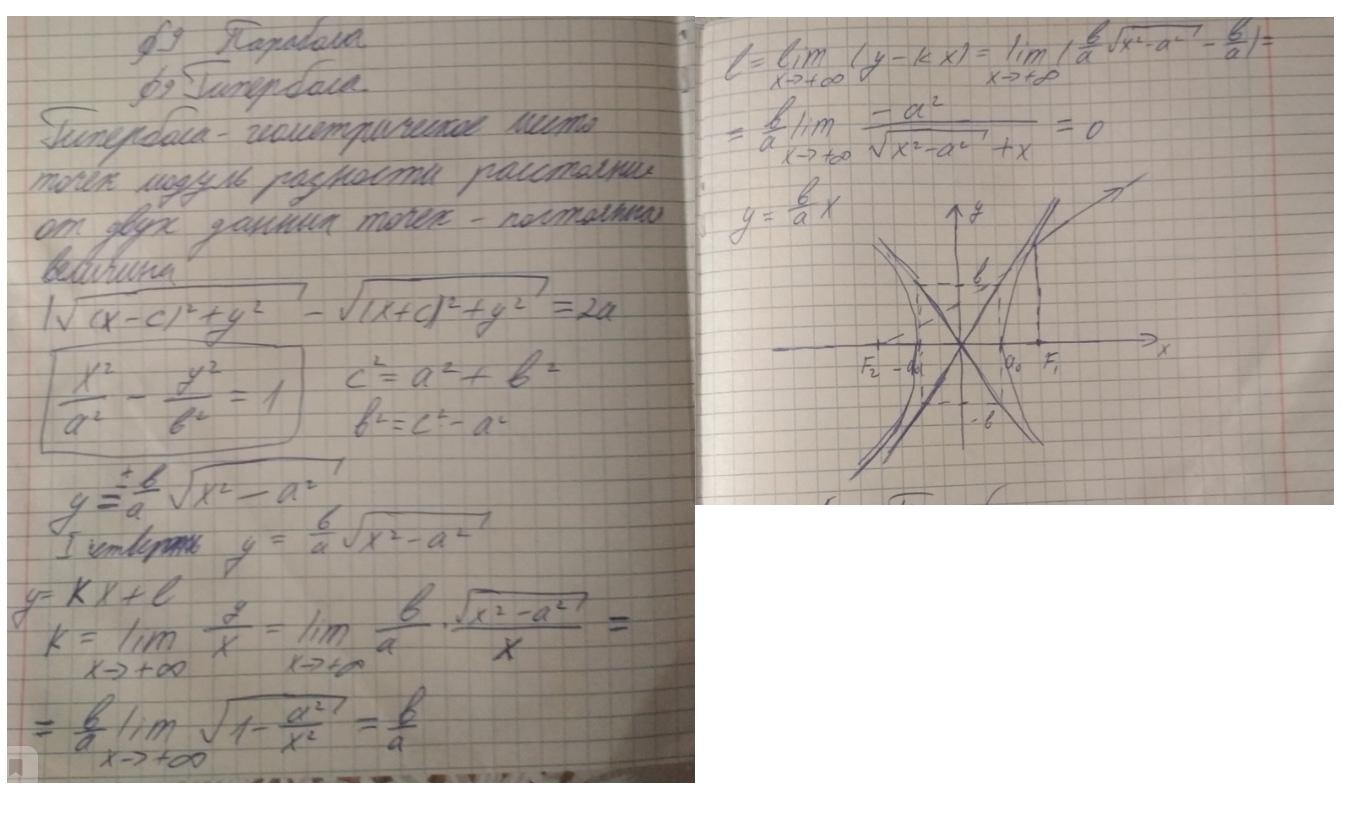 §9 Парабола
§9 Гипербола
Гипербола - геометрическое место
точек модуль разности расстояние
от двух данных точек - постоянная
величина
|√((x-c)²+y²) - √((x+c)²+y²) = 2a
x²/a² - y²/b² = 1
c² = a² + b²
b² = c² - a²
y = ± b/a √(x² - a²)
I четверть y = b/a √(x² - a²)
y = kx + l
k = lim x→+∞ y/x = lim x→+∞ b/a · √(x² - a²)/x =
= b/a lim x→+∞ √(1 - a²/x²) = b/a
l = lim x→+∞ (y - kx) = lim x→+∞ (b/a √(x² - a²) - b/a) =
= b/a lim x→+∞ -a²/(√(x² - a²) + x) = 0
y = b/a x
y
b
x
F₂
F₁
-b